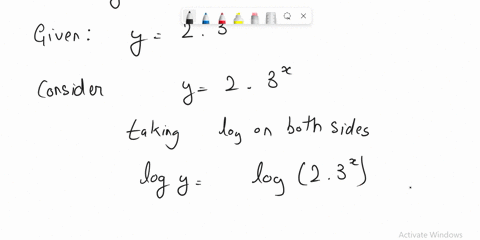 Given: y = 2 . 3
Consider y = 2 . 3^x
taking log on both sides
log y = log (2 . 3^x) .
Activate Windows